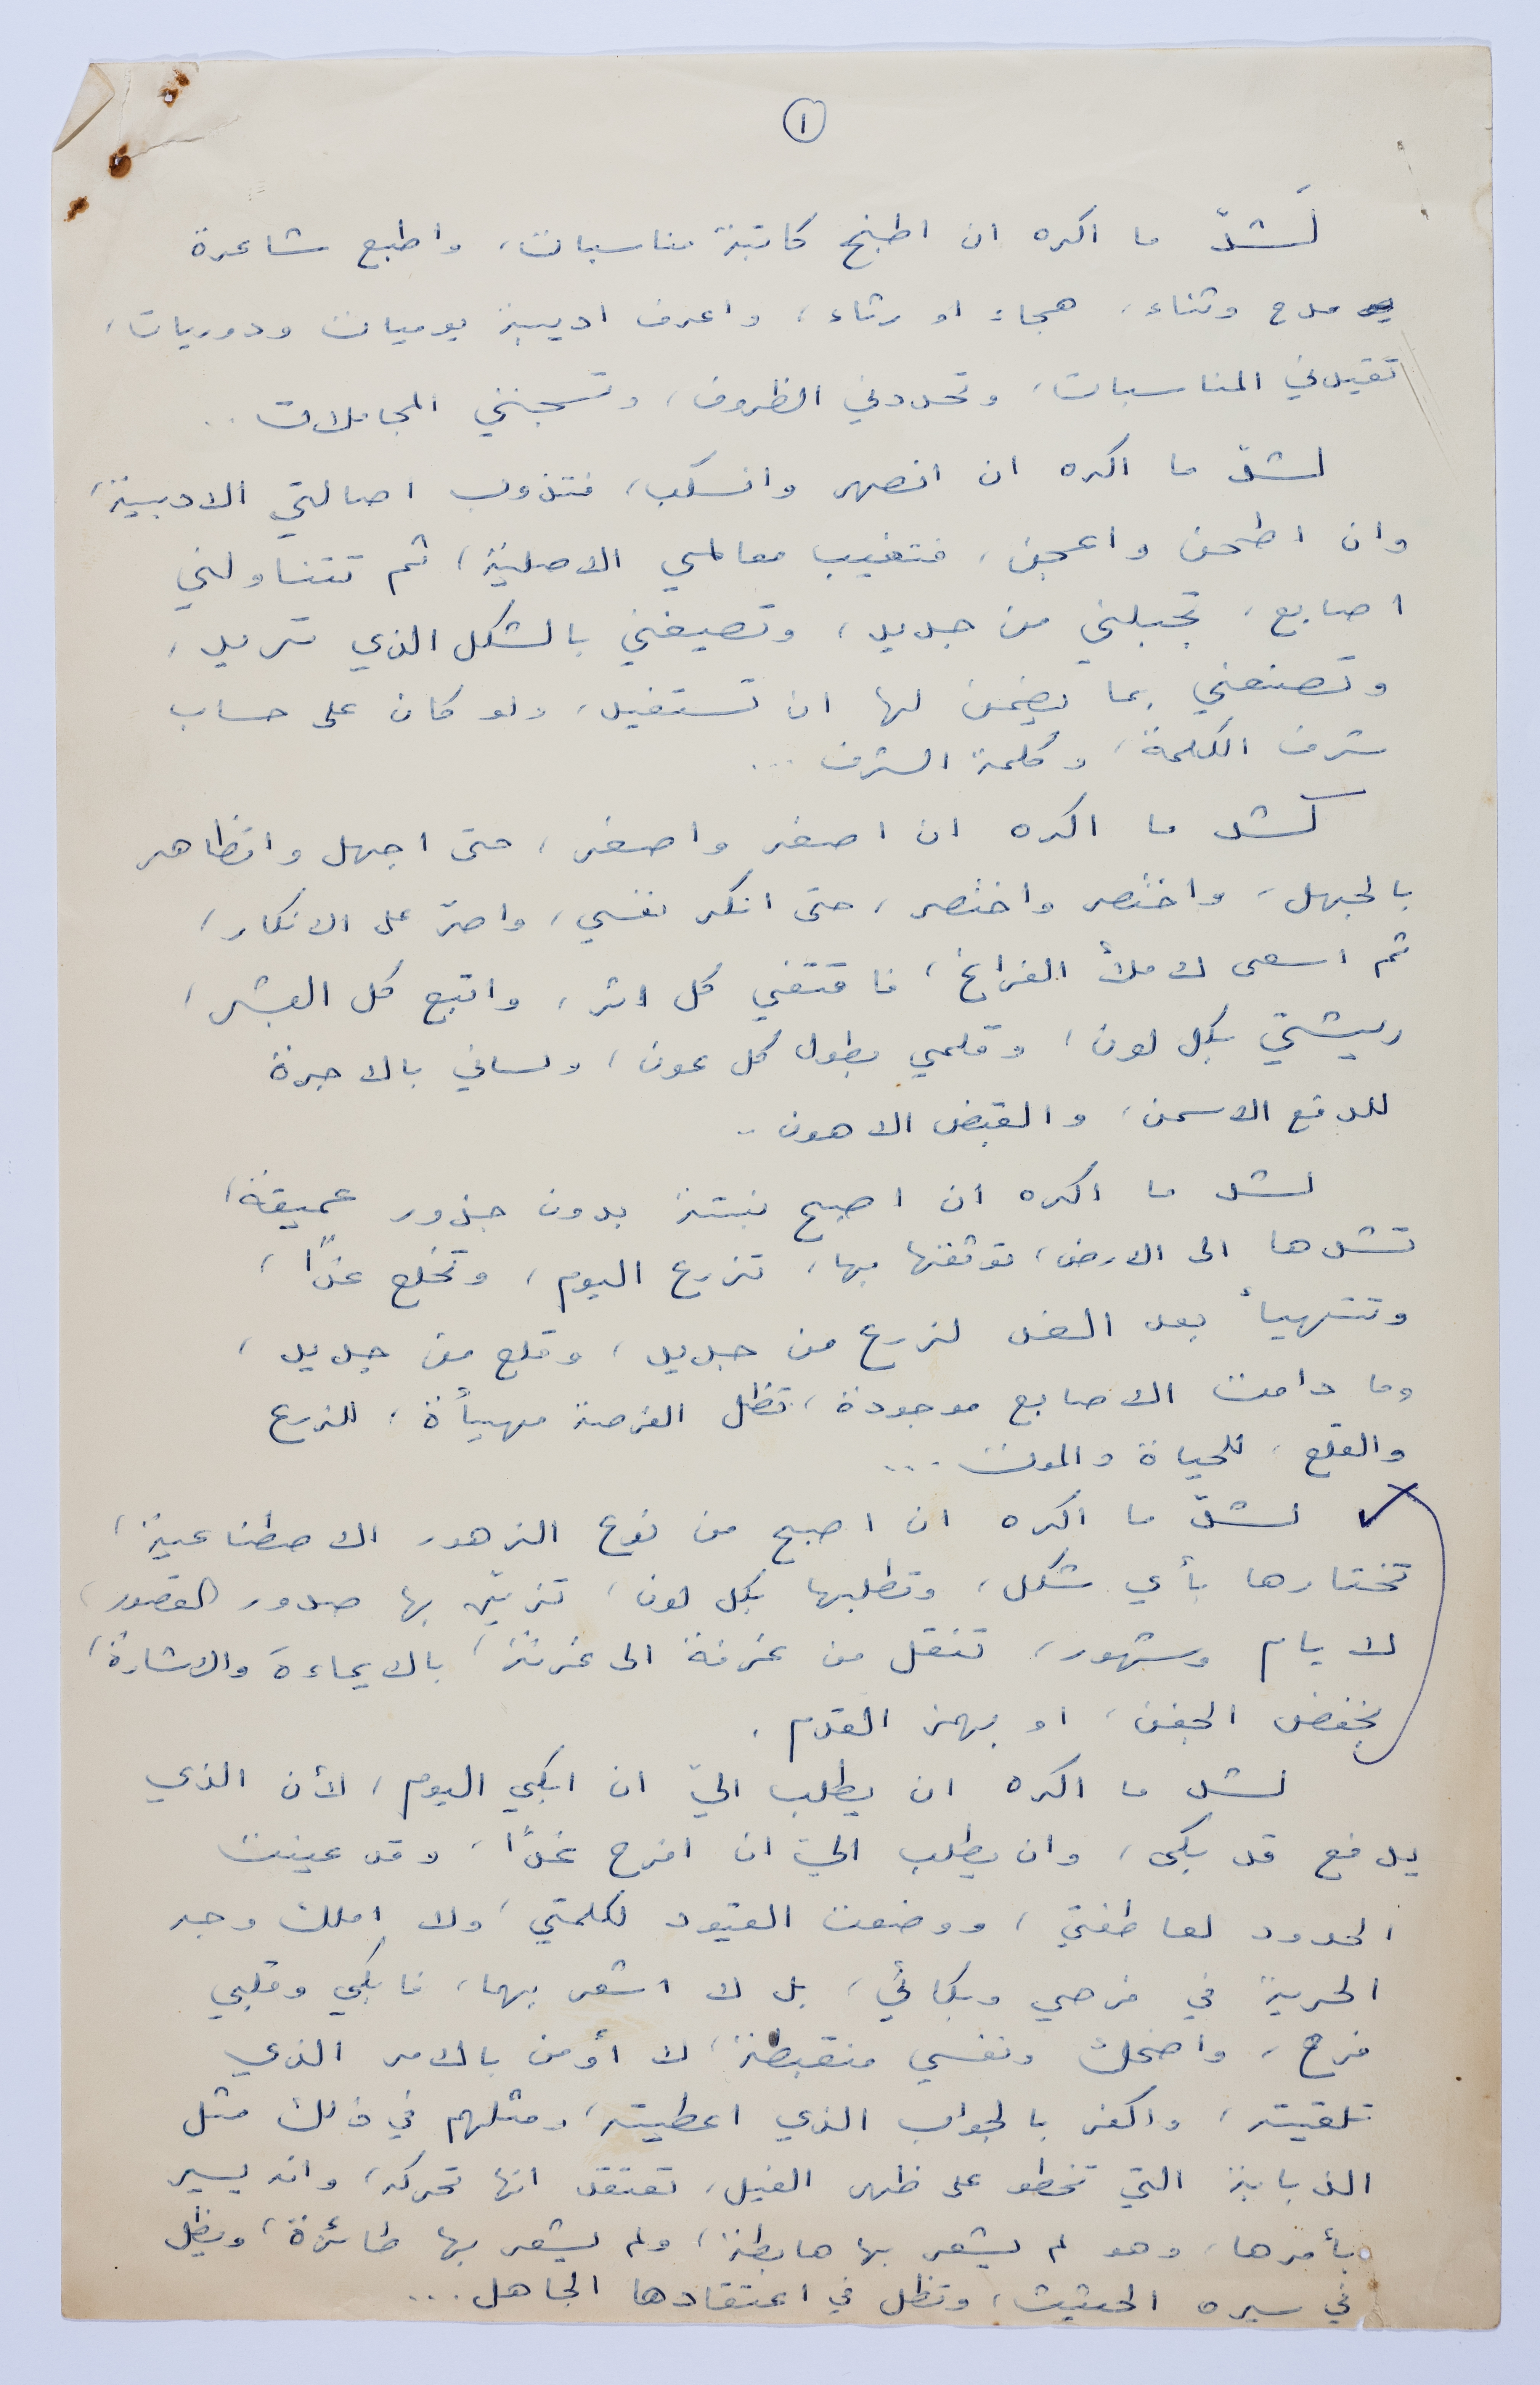 ١
لَشدّ ما اكره ان اطبخ كاتبة مناسبات، واطبع شاعرة
مدح وثناء، هجاء او رثاء، واعرف اديبة يوميات ودوريات،
تقيدني المناسبات، وتحددني الظروف، وتسجنني المجاملات..
لشدّ ما اكره ان انصهر وانسكب، فتذوب اصالتي الادبية،
وان اطحن واعجن، فتغيب معالمي الاصلية، ثم تتناولني
اصابع، تجبلني من جديد، وتصيغني بالشكل الذي تريد،
وتصنعني بما يضمن لها ان تستفيد، ولو كان على حساب
شرف الكلمة، وكلمة الشرف...
لشد ما اكره ان اصغر واصغر، حتى اجهل واتظاهر
بالجهل، واختصر واختصر، حتى انكر نفسي، واصرّ على الانكار،
ثم اسعى لاملأ الفراغ، فاقتفي كل اثر، واتبع كل البشر،
ريشتي بكل لون، وقلمي بطول كل عون، ولساني بالاجرة
للدفع الاسمن، والقبض الاهون..
لشد ما اكره ان اصبح نبتة بدون جذور عميقة،
تشدها الى الارض، توثقها بها، تزرع اليوم، وتخلع غدًا،
وتتهيأ بعد الغد لزرع من جديد، وقلع من جديد،
وما دامت الاصابع موجودة، تظل الفرصة مهيأة، للزرع
والقلع، للحياة والموت...
لشدّ ما اكره ان اصبح من نوع الزهور الاصطناعية،
تختارها بأي شكل، وتطلبها بكل لون، تزيّن بها صدور القصور،
لايام وشهور، تنقل من غرفة الى غرفة، بالايماءة والاشارة،
بخفض الجفن، او بهز القدم.
لشد ما اكره ان يطلب اليّ ان ابكي اليوم، لأن الذي
يدفع قد بكى، وان يطلب اليّ ان افرح غدًا، وقد عينت
الحدود لعاطفتي، ووضعت القيود لكلمتي، ولا املك وجه
الحرية في فرحي وبكائي، بل لا اشعر بهما، فابكي وقلبي
فرح، واضحك ونفسي منقبضة، لا أومن بالامر الذي
تلقيته، واكفر بالجواب الذي اعطيته، ومثلهم في ذلك مثل
الذبابة التي تخطو على ظهر الفيل، تعتقد انها تحركه، وانه يسير
بأمرها، وهو لم يشعر بها هابطة، ولم يشعر بها طائرة، ويظل
في سيره الحثيث، وتظل في اعتقادها الجاهل...